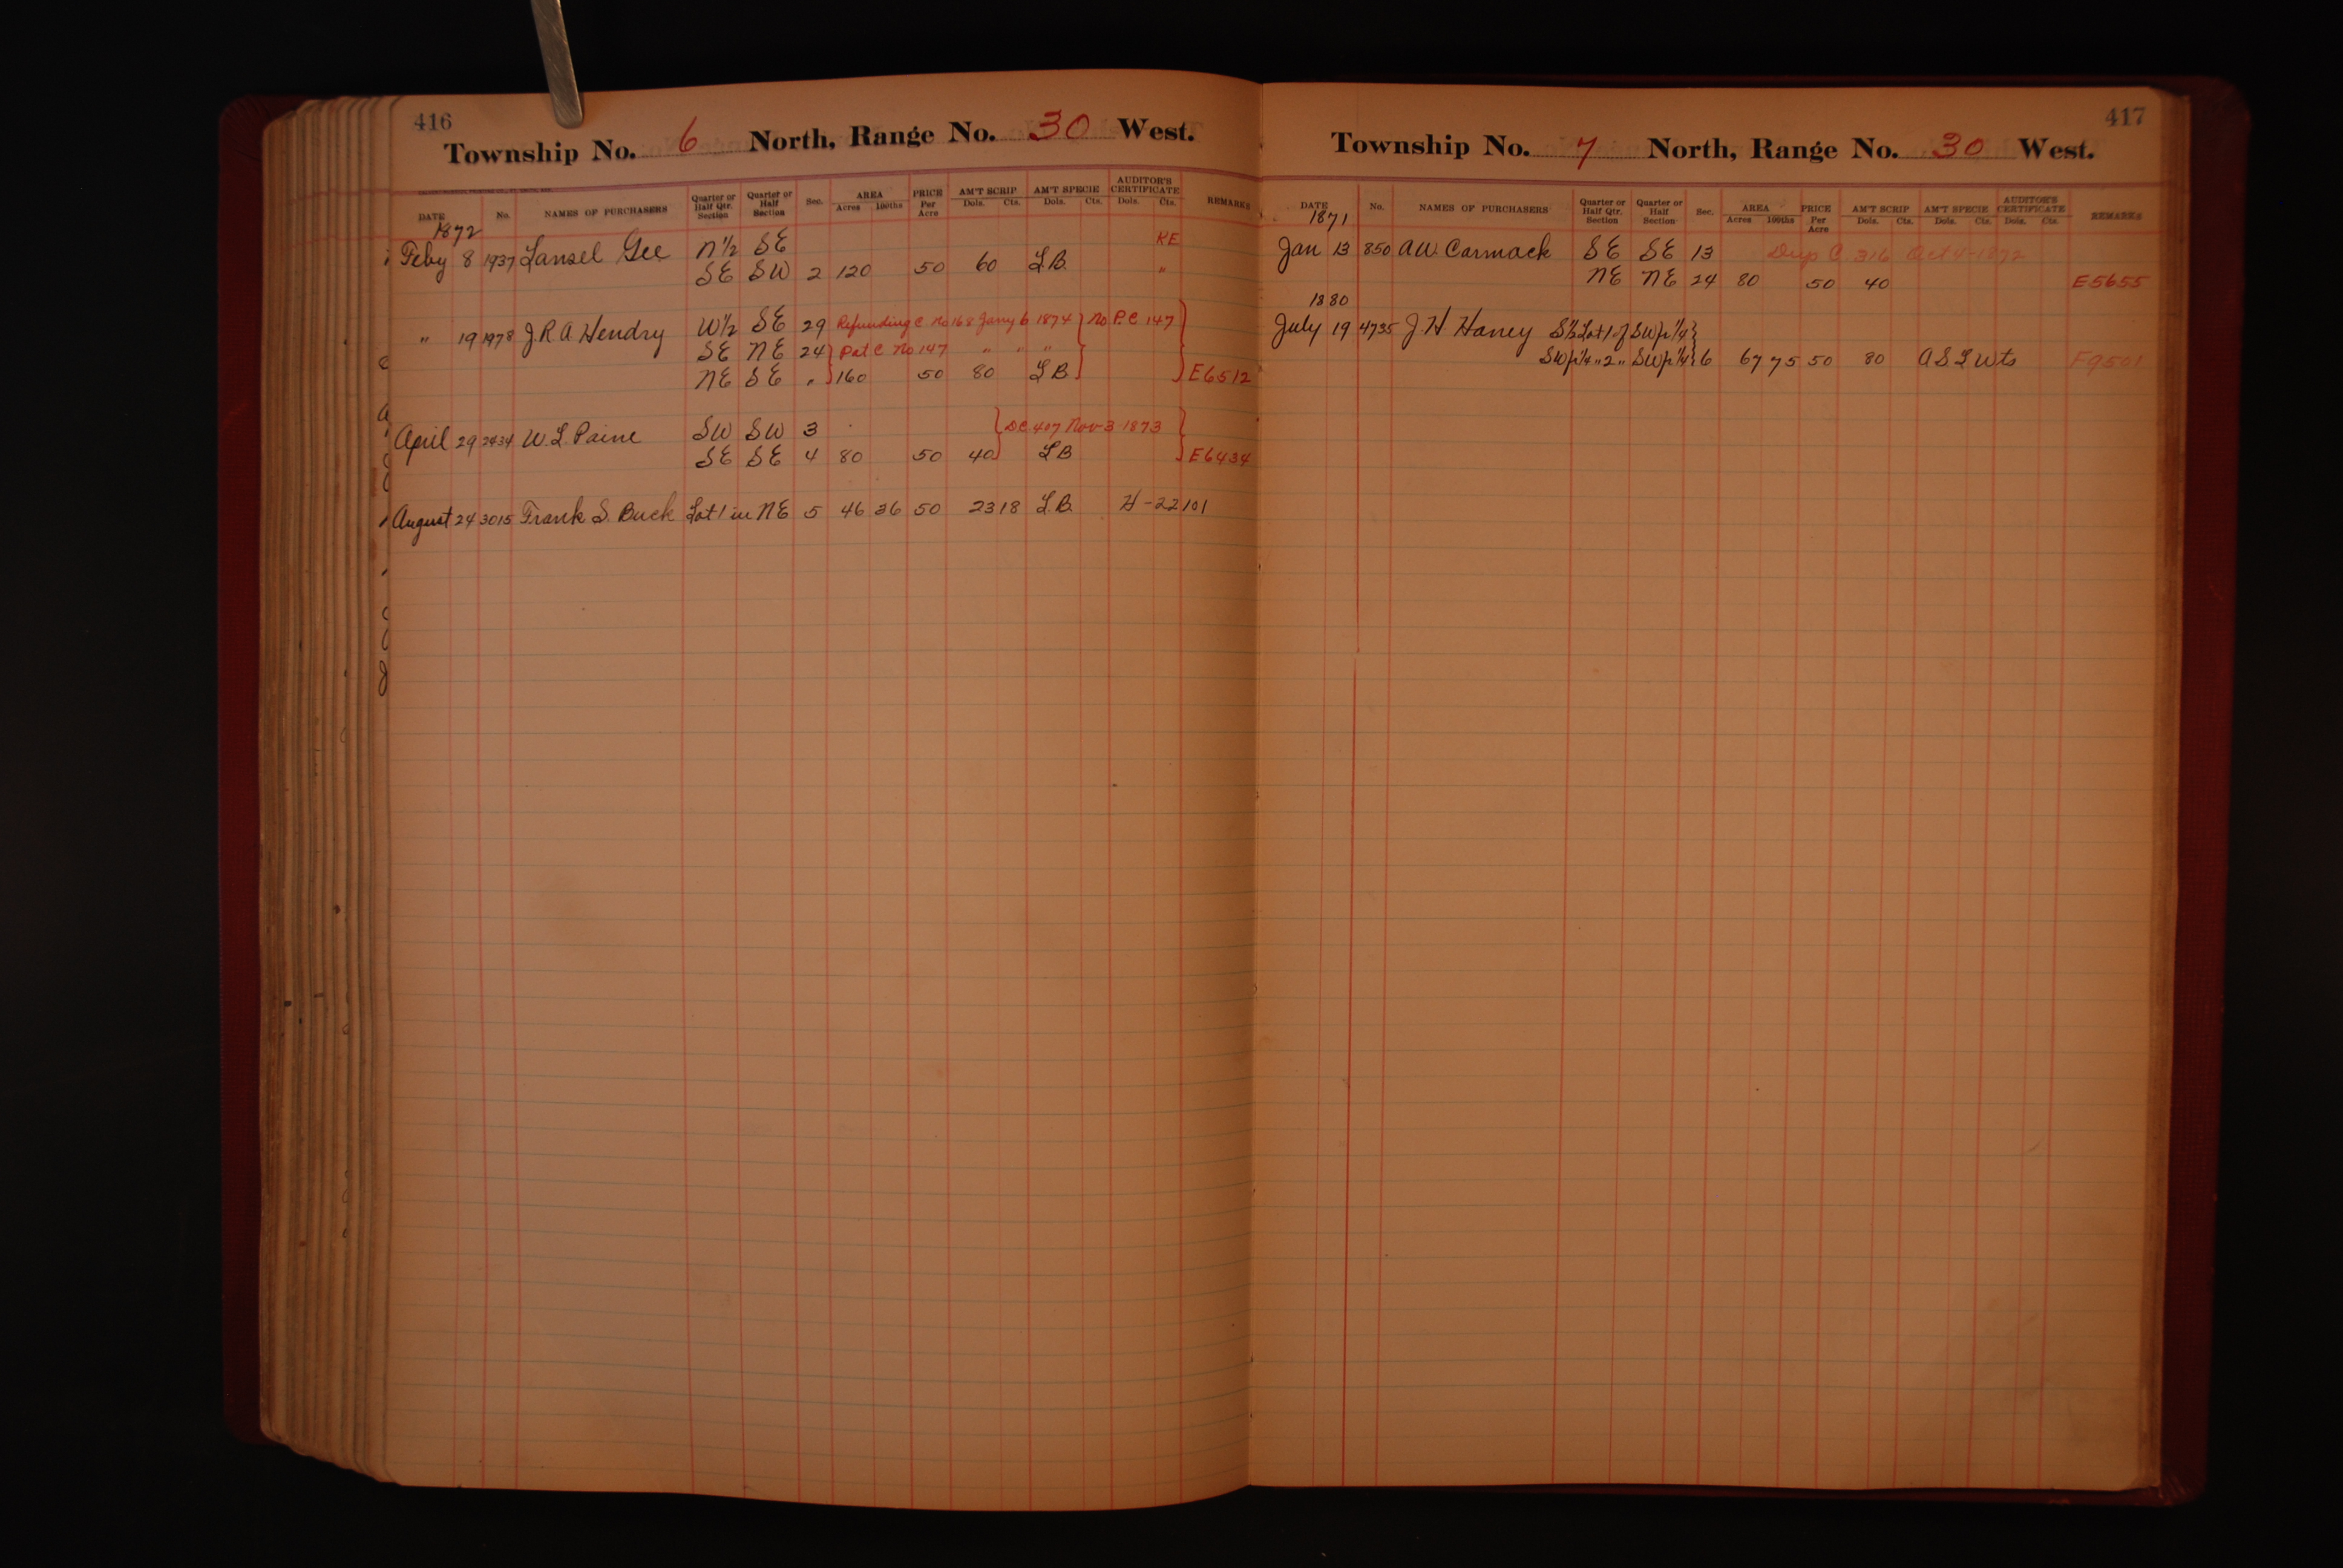 416
Township No. 6 North, Range No. 30 West.
DATE No. NAMES OF PURCHASERS Quarter or Half Qtr. Section Quarter or Half Section Sec. AREA Acres 100ths PRICE Per Acre AM'T SCRIP Dols. Cts. AM'T SPECIE Dols. Cts. AUDITOR'S CERTIFICATE Dols. Cts. REMARKS
1872
Feby 8 1937 Lansel Gee N½ SE RE
SE SW 2 120 50 60 L.B. "
" 19 1978 J.R.A. Hendry W½ SE 29 Refunding C No 168 Jany 6 1874 No P.C 147
SE NE 24 Pat C No 147 " " "
NE SE " 160 50 80 LB E6512
April 29 2434 W.L. Paine SW SW 3 DC 407 Nov 3-1873
SE SE 4 80 50 40 LB E6434
August 24 3015 Frank S. Buck Lot 1 in NE 5 46 36 50 23 18 L.B. H-22101
417
Township No. 7 North, Range No. 30 West.
DATE No. NAMES OF PURCHASERS Quarter or Half Qtr. Section Quarter or Half Section Sec. AREA Acres 100ths PRICE Per Acre AM'T SCRIP Dols. Cts. AM'T SPECIE Dols. Cts. AUDITOR'S CERTIFICATE Dols. Cts. REMARKS
1871
Jan 13 850 A.W. Carmack SE SE 13 Dup C 316 Oct 4-1872
NE NE 24 80 50 40 E5655
1880
July 19 4735 J.H. Haney S½ Lot 1 of SWfr¼
SWfr¼ " 2 " SWfr¼ 6 67 75 50 80 A S L Wts F9501